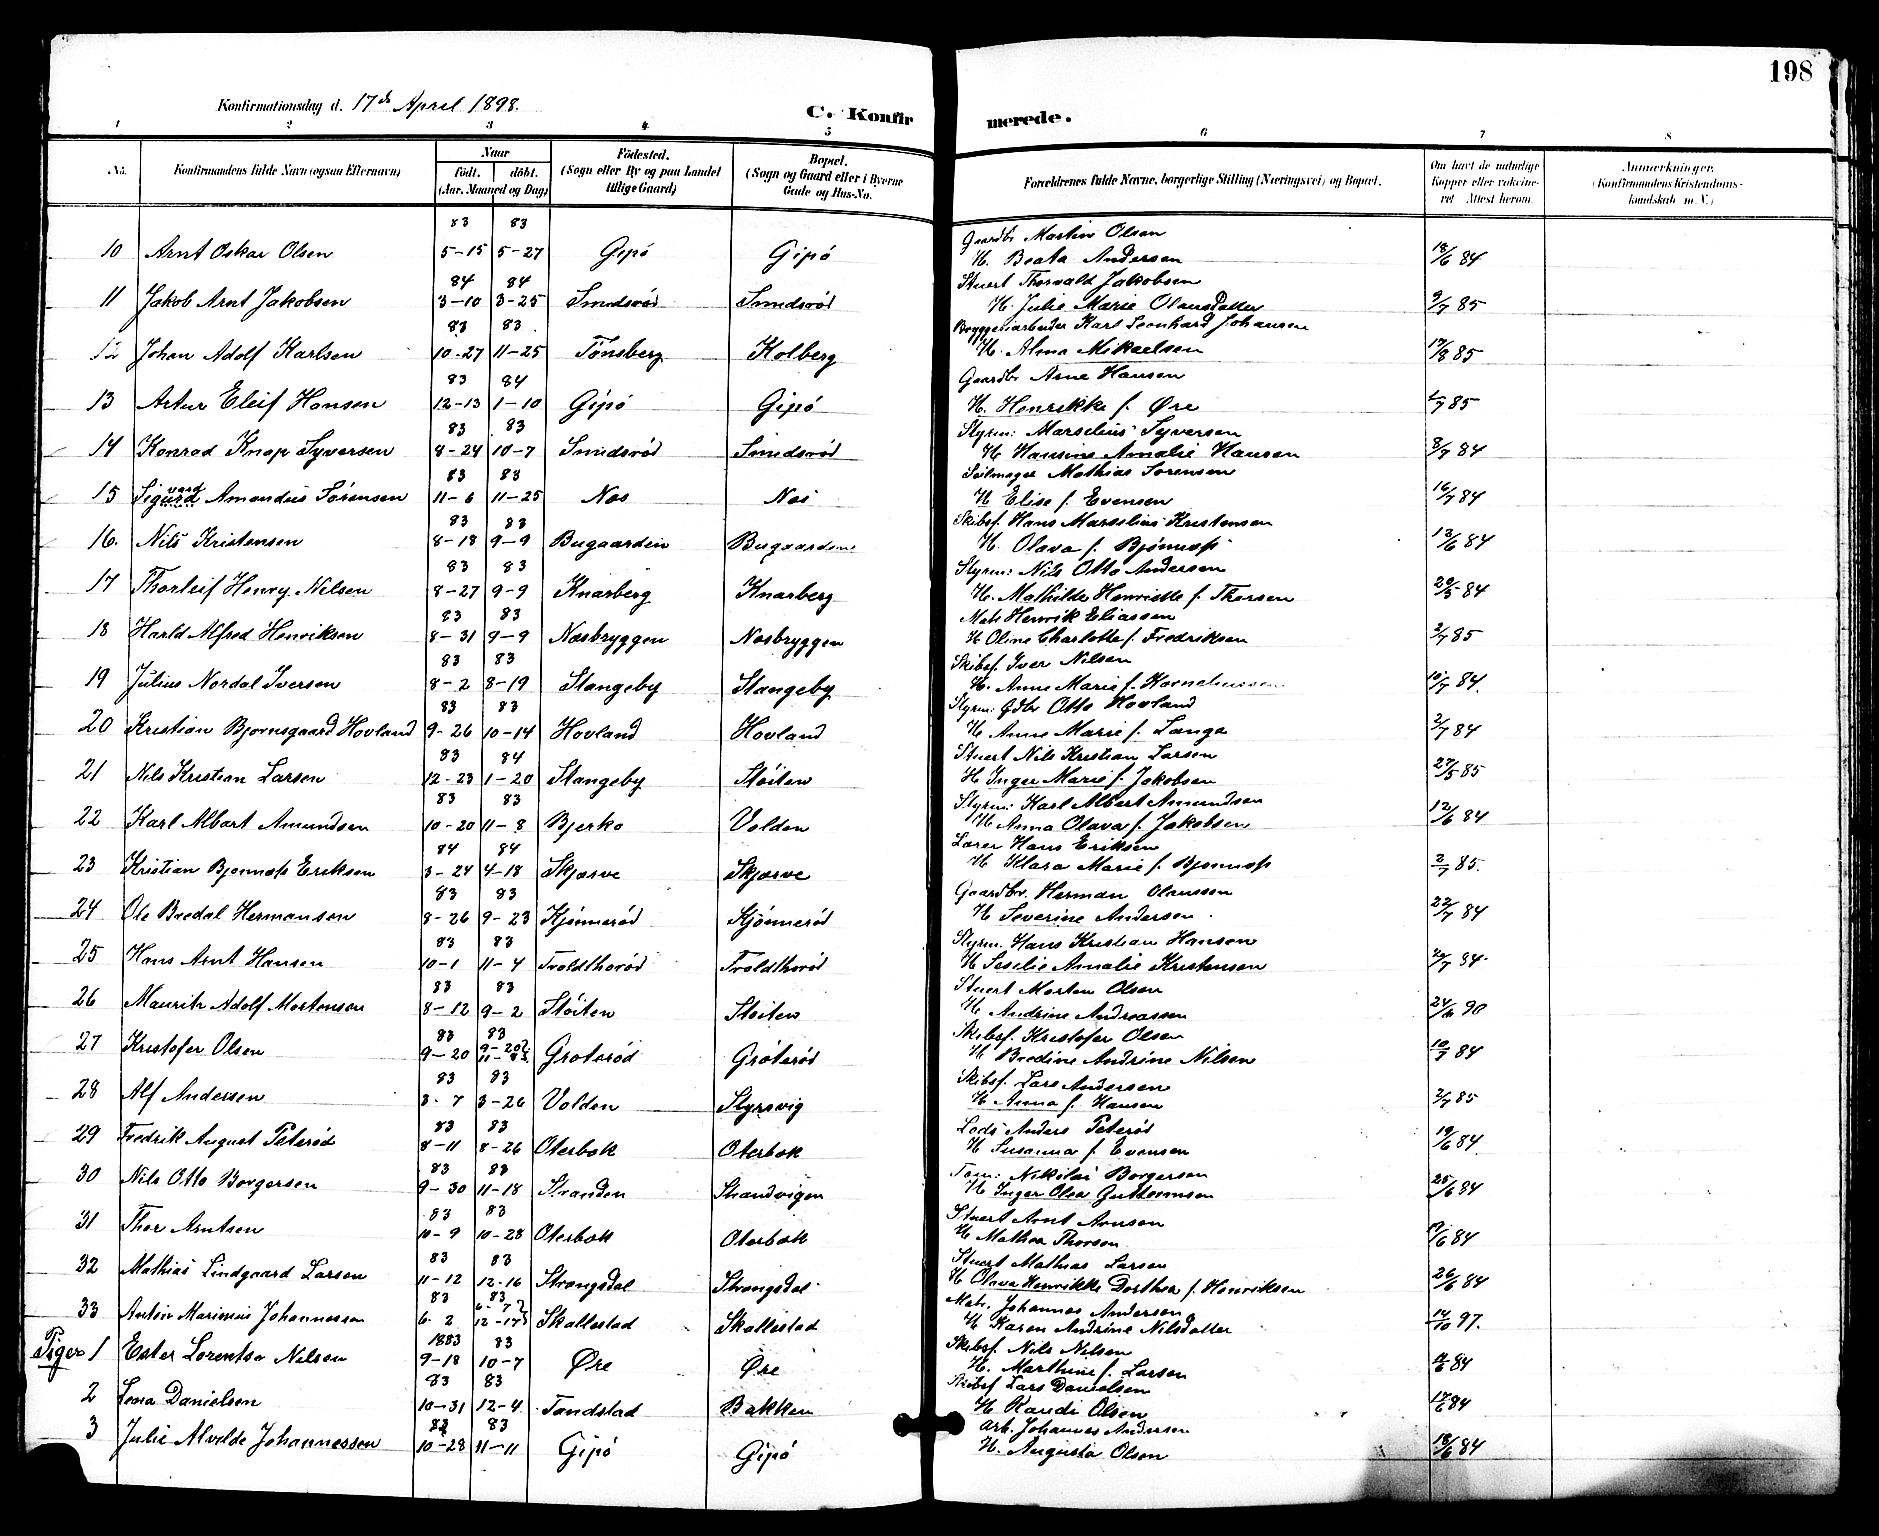 198
Konfirmationsdag d. 17de April 1898.
C. Konfirmerede.
1 2 3 4 5 6 7 8
No.
Konfirmandens fulde Navn (ogsaa Efternavn)
Naar
født. døbt.
(Aar, Maaned og Dag)
Fødested.
(Sogn eller By og paa Landet tillige Gaard)
Bopæl.
(Sogn og Gaard eller i Byerne Gade og Hus-No.
Forældrenes fulde Navne, borgerlige Stilling (Næringsvei) og Bopæl.
Om havt de naturlige Kopper eller vakcineret. Attest herom.
Anmærkninger.
(Konfirmandens Kristendomskundskab m. V.)
83 83 Gaardbr Martin Olsen
10 Arnt Oskar Olsen 5-15 5-27 Gipø Gipø H. Beata Andersen 18/6 84
84 84 Stuert Thorvald Jakobsen
11 Jakob Arnt Jakobsen 3-10 3-25 Smidsrød Smidsrød H. Julie Marie Olausdatter 9/7 85
83 83 Bryggeriarbeider Karl Leonhard Johansen
12 Johan Adolf Karlsen 10-27 11-25 Tønsberg Kolberg H. Alma Mikaelsen 85
83 84 Gaardbr Arne Hansen
13 Artur Eleif Hansen 12-13 1-10 Gipø Gipø H. Henrikke f. Øre 85
83 83 Styrm: Marselius Syversen
14 Konrad Knap Syversen 8-24 10-7 Smidsrød Smidsrød H Hansine Amalie Hansen 8/7 84
83 83 Seilmager Mathias Sørensen
15 Sigurd Amandus Sørensen 11-6 11-25 Nes Nes H Elise f. Evensen 16/7 84
83 83 Skibsf. Hans Marselius Kristensen
16. Nils Kristensen 8-18 9-9 Bugaarden Bugaarden H. Olava f. Bjønness 13/6 84
83 83 Styrm: Nils Otto Andersen
17 Thorleif Henry Nilsen 8-27 9-9 Knarberg Knarberg H. Mathilde Henriette f. Thorsen 29/5 84
83 83 Mats Henrik Eliassen
18 Harld Alfred Henriksen 8-31 9-9 Nesbryggen Nesbryggen H Oline Charlotte f. Fredriksen 2/7 85
83 83 Skibsf. Iver Nilsen
19 Julius Nordal Iversen 8-2 8-19 Stangeby Stangeby H. Anne Marie f. Korneliussen 10/7 84.
83 83 Styrm: Gdbr Otto Hovland
20 Kristian Bjørnsgaard Hovland 9-26 10-14 Hovland Hovland H Anne Marie f. Lange 2/7 84
83 84 Stuert Nils Kristian Larsen
21 Nils Kristian Larsen 12-23 1-20 Stangeby Støiten H Inger Marie f. Jakobsen 27/5 85
83 83 Styrm: Karl Albert Amundsen
22 Karl Albert Amundsen 10-20 11-8 Bjerkø Volden H Anna Olava f. Jakobsen 12/6 84
84 84 Lærer Hans Eriksen
23 Kristian Bjønness Eriksen 3-24 4-18 Skjerve Skjerve H Klara Marie f. Bjønness 2/7 85.
83 83 Gaardbr. Herman Olaussen
24 Ole Bredal Hermansen 8-26 9-23 Kjønnerød Kjønnerød H Severine Andersen 22/7 84
83 83 Styrm. Hans Kristian Hansen
25 Hans Arnt Hansen 10-1 11-4 Troldthorød Troldthorød H Sesilie Amalie Kristensen 84
83 83 Stuert Morten Olsen
26 Mauritz Adolf Mortensen 8-12 9-2 Støiten Støiten H Andrine Andreassen 90
83 83 Skibsf. Kristofer Olsen
27 Kristofer Olsen 9-20 9-20 Grøterød Grøterød H Bredine Andrine Nilsen 10/7 84
83 83 Skibsf. Lars Andersen
28 Alf Andersen 3-7 3-26 Volden Styrsvig H Anna f. Hansen 2/7 85
83 83 Lods Anders Peterød
29 Fredrik August Peterød 8-11 8-26 Oterbek Oterbek H Susanna f. Evensen 19/6 84.
83 83 Nikolai Borgersen
30 Nils Otto Borgersen 9-30 11-18 Stranden Strandvigen H Inger Olea Guttormsen 25/6 84
83 83 Stuert Arnt Arnsen
31 Thor Arntsen 10-9 10-28 Oterbek Oterbek H Mathea Thorsen 84
83 83 Stuert Mathias Larsen
32 Mathias Lindgaard Larsen 11-12 12-16 Strengsdal Strengsdal H Olava Henrikke Dorthea f. Henriksen 26/6 84
83 83 Mat. Johannes Andersen
33 Anton Marinius Johannessen 6-2 12-17 Skallestad Skallestad H Karen Andrine Nilsdatter 14/10 97.
1883 83 Skibsf. Nils Nilsen
Piger 1 Ester Lorentse Nilsen 9-18 10-7 Øre Øre H. Marthine f. Larsen 84
83 83 Skibsf Lars Danielsen
2 Lena Danielsen 10-31 12-4 Tandstad Bakken H Randi Olsen 84
83 83 Arb. Johannes Andersen
3 Julie Alvilde Johannessen 10-28 11-11 Gipø Gipø H. Augusta Olsen 18/6 84